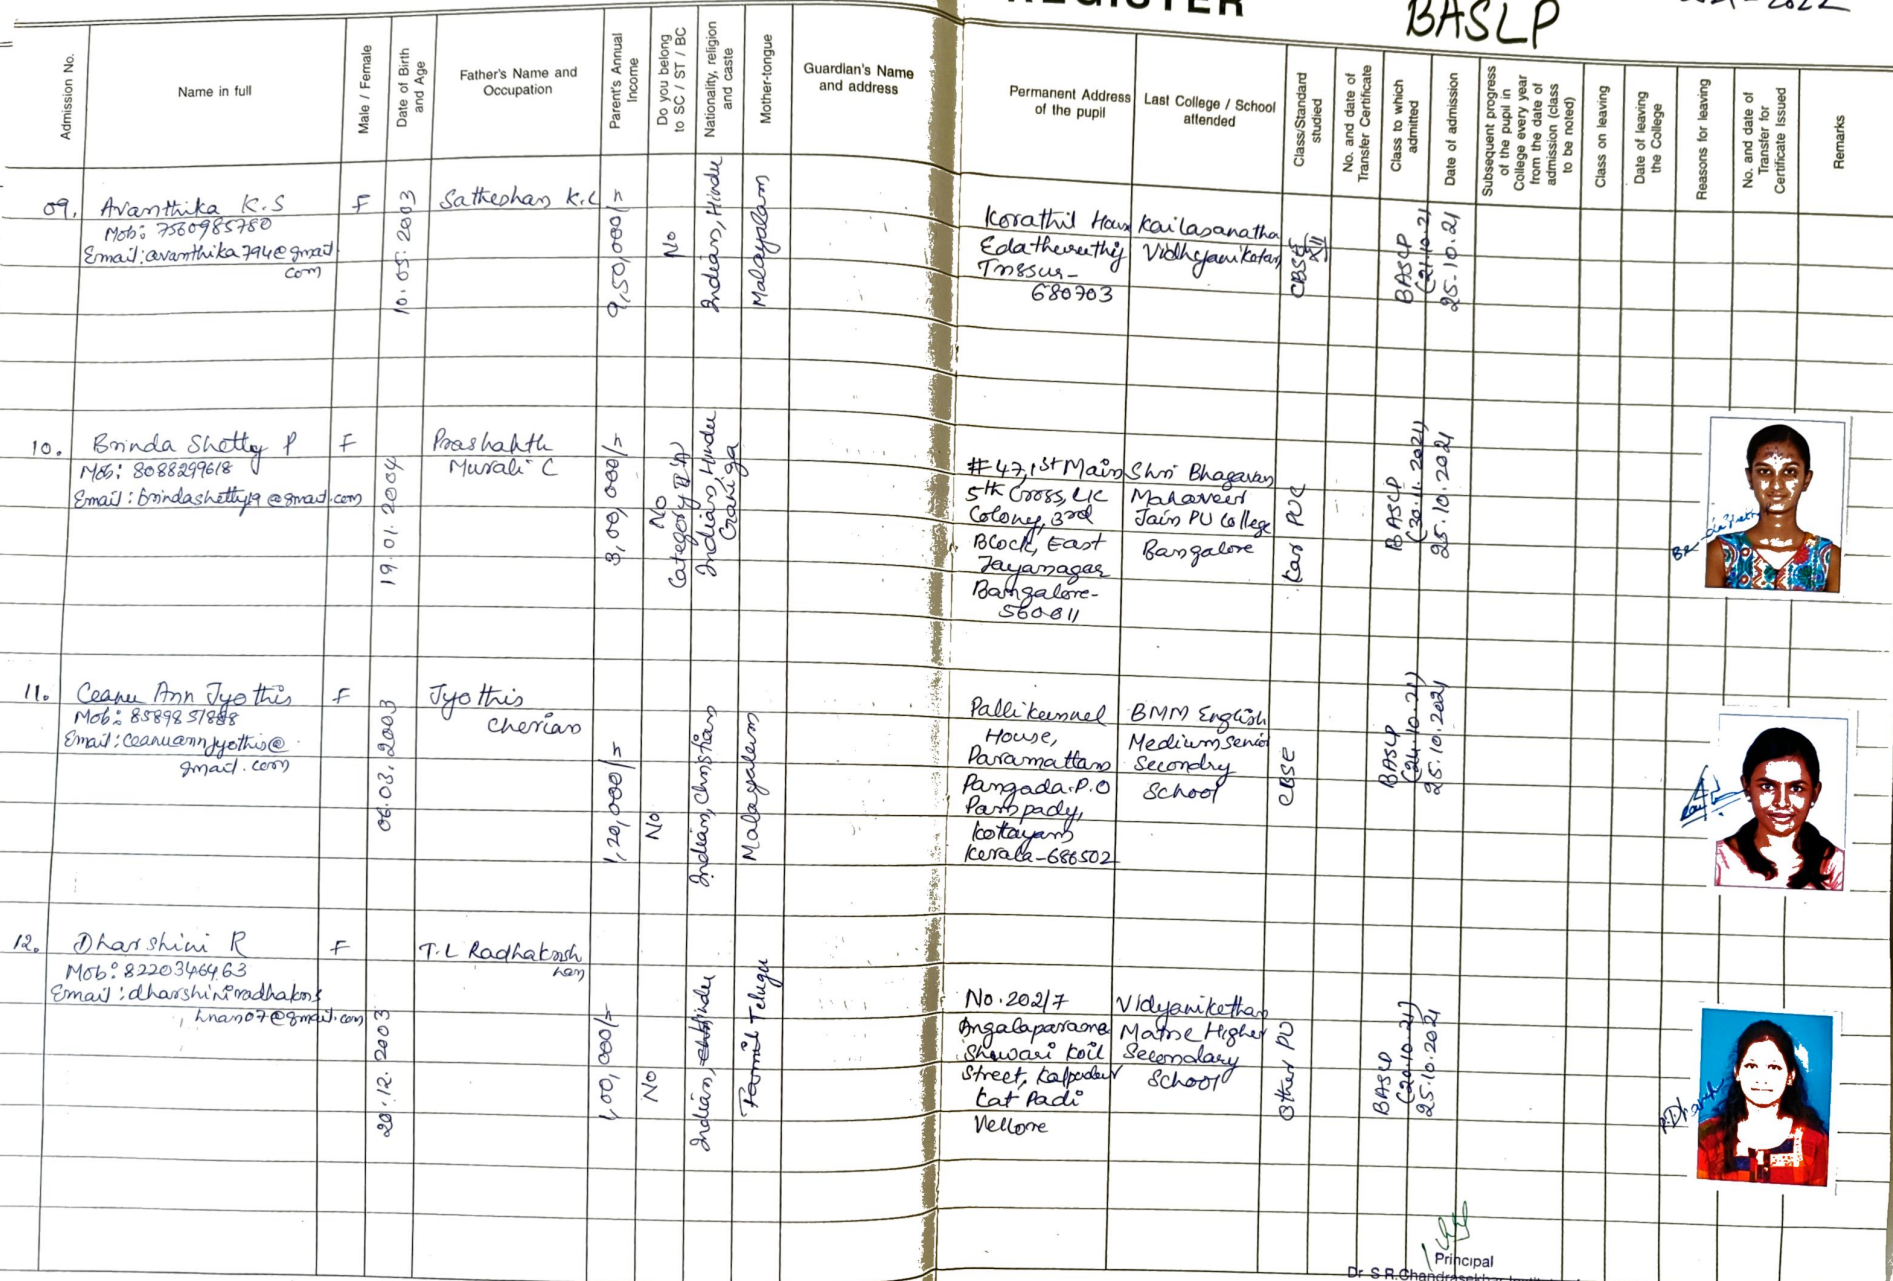 REGISTER
BASLP
2021-2022
Admission No.
Name in full
Male / Female
Date of Birth
and Age
Father's Name and
Occupation
Parent's Annual
Income
Do you belong
to SC / ST / BC
Nationality, religion
and caste
Mother-tongue
Guardian's Name
and address
Permanent Address
of the pupil
Last College / School
attended
Class/Standard
studied
No. and date of
Transfer Certificate
Class to which
admitted
Date of admission
Subsequent progress
of the pupil in
College every year
from the date of
admission (class
to be noted)
Class on leaving
Date of leaving
the College
Reasons for leaving
No. and date of
Transfer for
Certificate Issued
Remarks
09.
Avanthika K.S
Mob: 7560985780
Email: avanthika794@gmail
com
F
10.05.2003
Satheshan K.C
9,50,000/=
No
Indian, Hindu
Malayalam
Korathil Hous
Edathuruthy
Trissur-
680703
Kailasanatha
Vidhyaniketan
CBSE
XII
BASLP
(21.10.21
25.10.21
10.
Brinda Shetty P
Mob: 8088299618
Email: brindashetty19@gmail.com
F
19.01.2004
Prashahth
Murali C
3,00,000/=
No
Category II A)
Indian, Hindu
Ganiga
#47, 1st Main
5th Cross, LIC
Colony, 3rd
Block, East
Jayanagar
Bangalore-
560011
Shri Bhagavan
Mahaveer
Jain PU College
Bangalore
Kar PUC
BASLP
(30.11.2021)
25.10.2021
11.
Ceanu Ann Jyothis
Mob: 8589851888
Email: ceanuannjyothis@
gmail.com
F
06.03.2003
Jyothis
Cherian
1,20,000/=
No
Indian, Christian
Malayalam
Pallikunnel
House,
Paramattam
Pangada.P.O
Pampady,
Kottayam
Kerala-686502
BMM English
Medium Senior
Secondry
School
CBSE
BASLP
(24.10.21)
25.10.2021
12.
Dharshini R
Mob: 8220346463
Email: dharshiniradhakris
hnan07@gmail.com
F
20.12.2003
T.L Radhakrish
nan
1,00,000/=
No
Indian, Hindu
Tamil Telugu
No.202/7
Angalaparame
Shwari Koil
Street, Kalpudur
Kat Padi
Vellore
Vidyanikethan
Matric Higher
Secondary
School
Other PU
BASLP
(20.10.21)
25.10.2021
R.Dharsh
Principal
Dr. S.R.Chandrasekhar